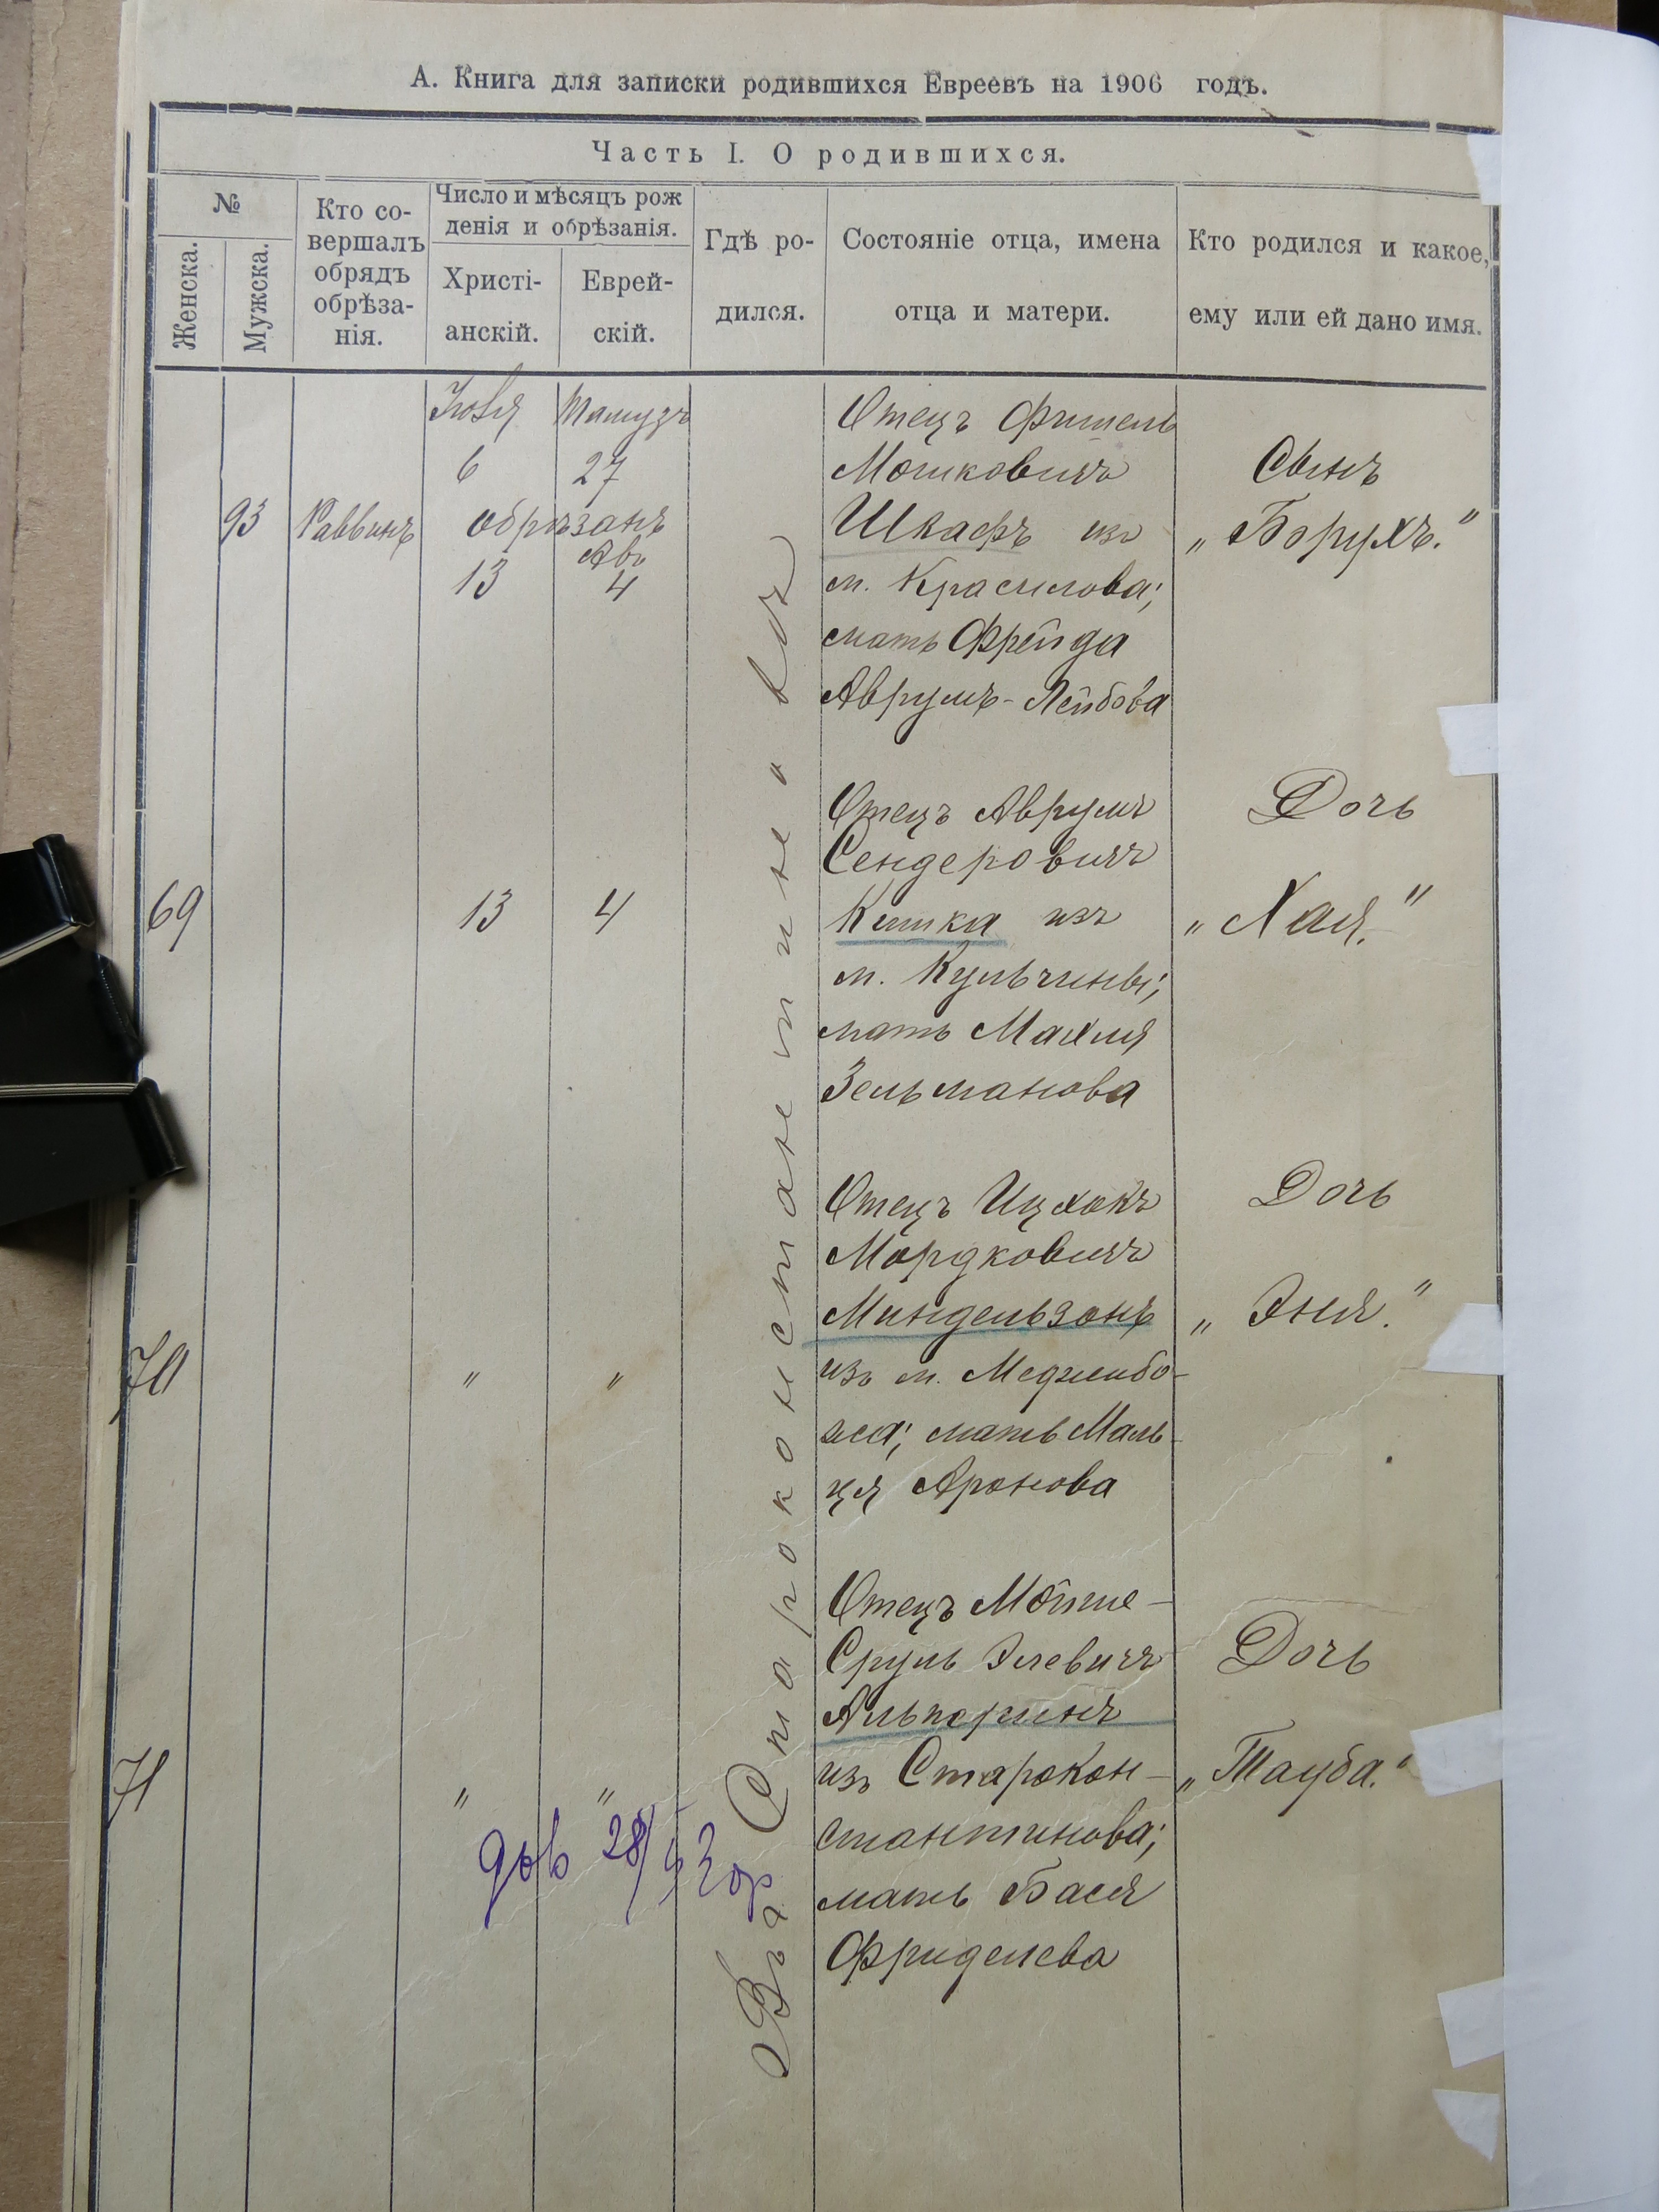 А. Книга для записки родившихся Евреевъ на 1906 годъ.
Часть I. О родившихся.
№
Женска.
Мужска.
Кто со-
вершалъ
обрядъ
обрѣза-
нія.
Число и мѣсяцъ рож
денія и обрѣзанія.
Христі-
анскій.
Еврей-
скій.
Гдѣ ро-
дился.
Состояніе отца, имена
отца и матери.
Кто родился и какое,
ему или ей дано имя.
Въ Староконстантиновѣ
93
Раввинъ
Іюля
Тамузъ
6
27
обрѣзанъ
Авъ
13
4
Отецъ Фишель
Мошковичъ
Шкафъ изъ
м. Красилова;
мать Фрейда
Аврумъ-Лейбова
Сынъ
„Борухъ."
69
13
4
Отецъ Аврумъ
Сендеровичъ
Кишка изъ
м. Кульчины;
мать Махля
Зельманова
Дочь
„Хая."
70
"
"
Отецъ Ицхокъ
Мордковичъ
Миндельзонъ
изъ м. Меджибо-
жа; мать Маль-
ця Аронова
Дочь
„Эня."
71
"
"
дов 28/
Отецъ Мойше-
Сруль Элевичъ
Альперинъ
изъ Старокон-
стантинова;
мать Бася
Фриделева
Дочь
„Тауба."